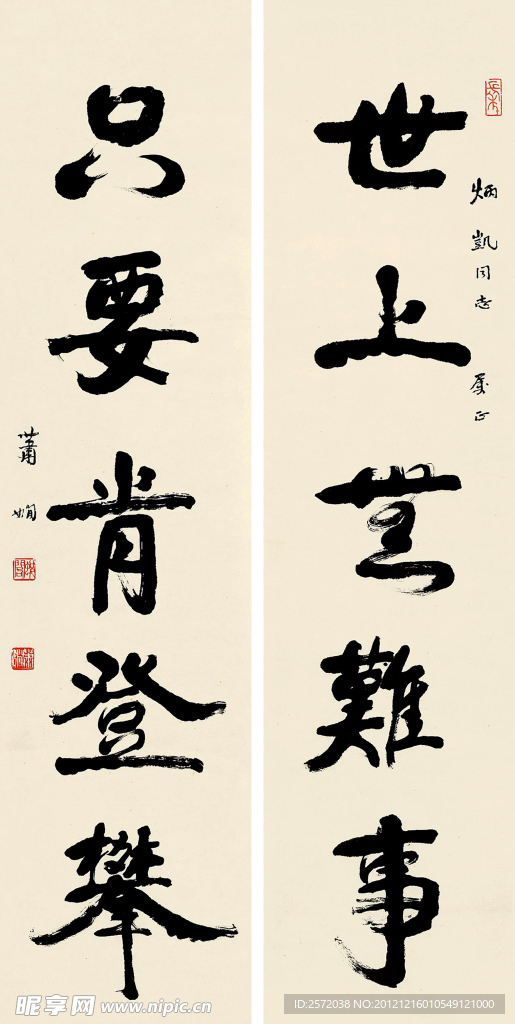 炳凱同志 属正
世上无難事
只要肯登攀
蕭嫻
昵享网 www.nipic.cn
ID:2572038 NO:20121216010549121000